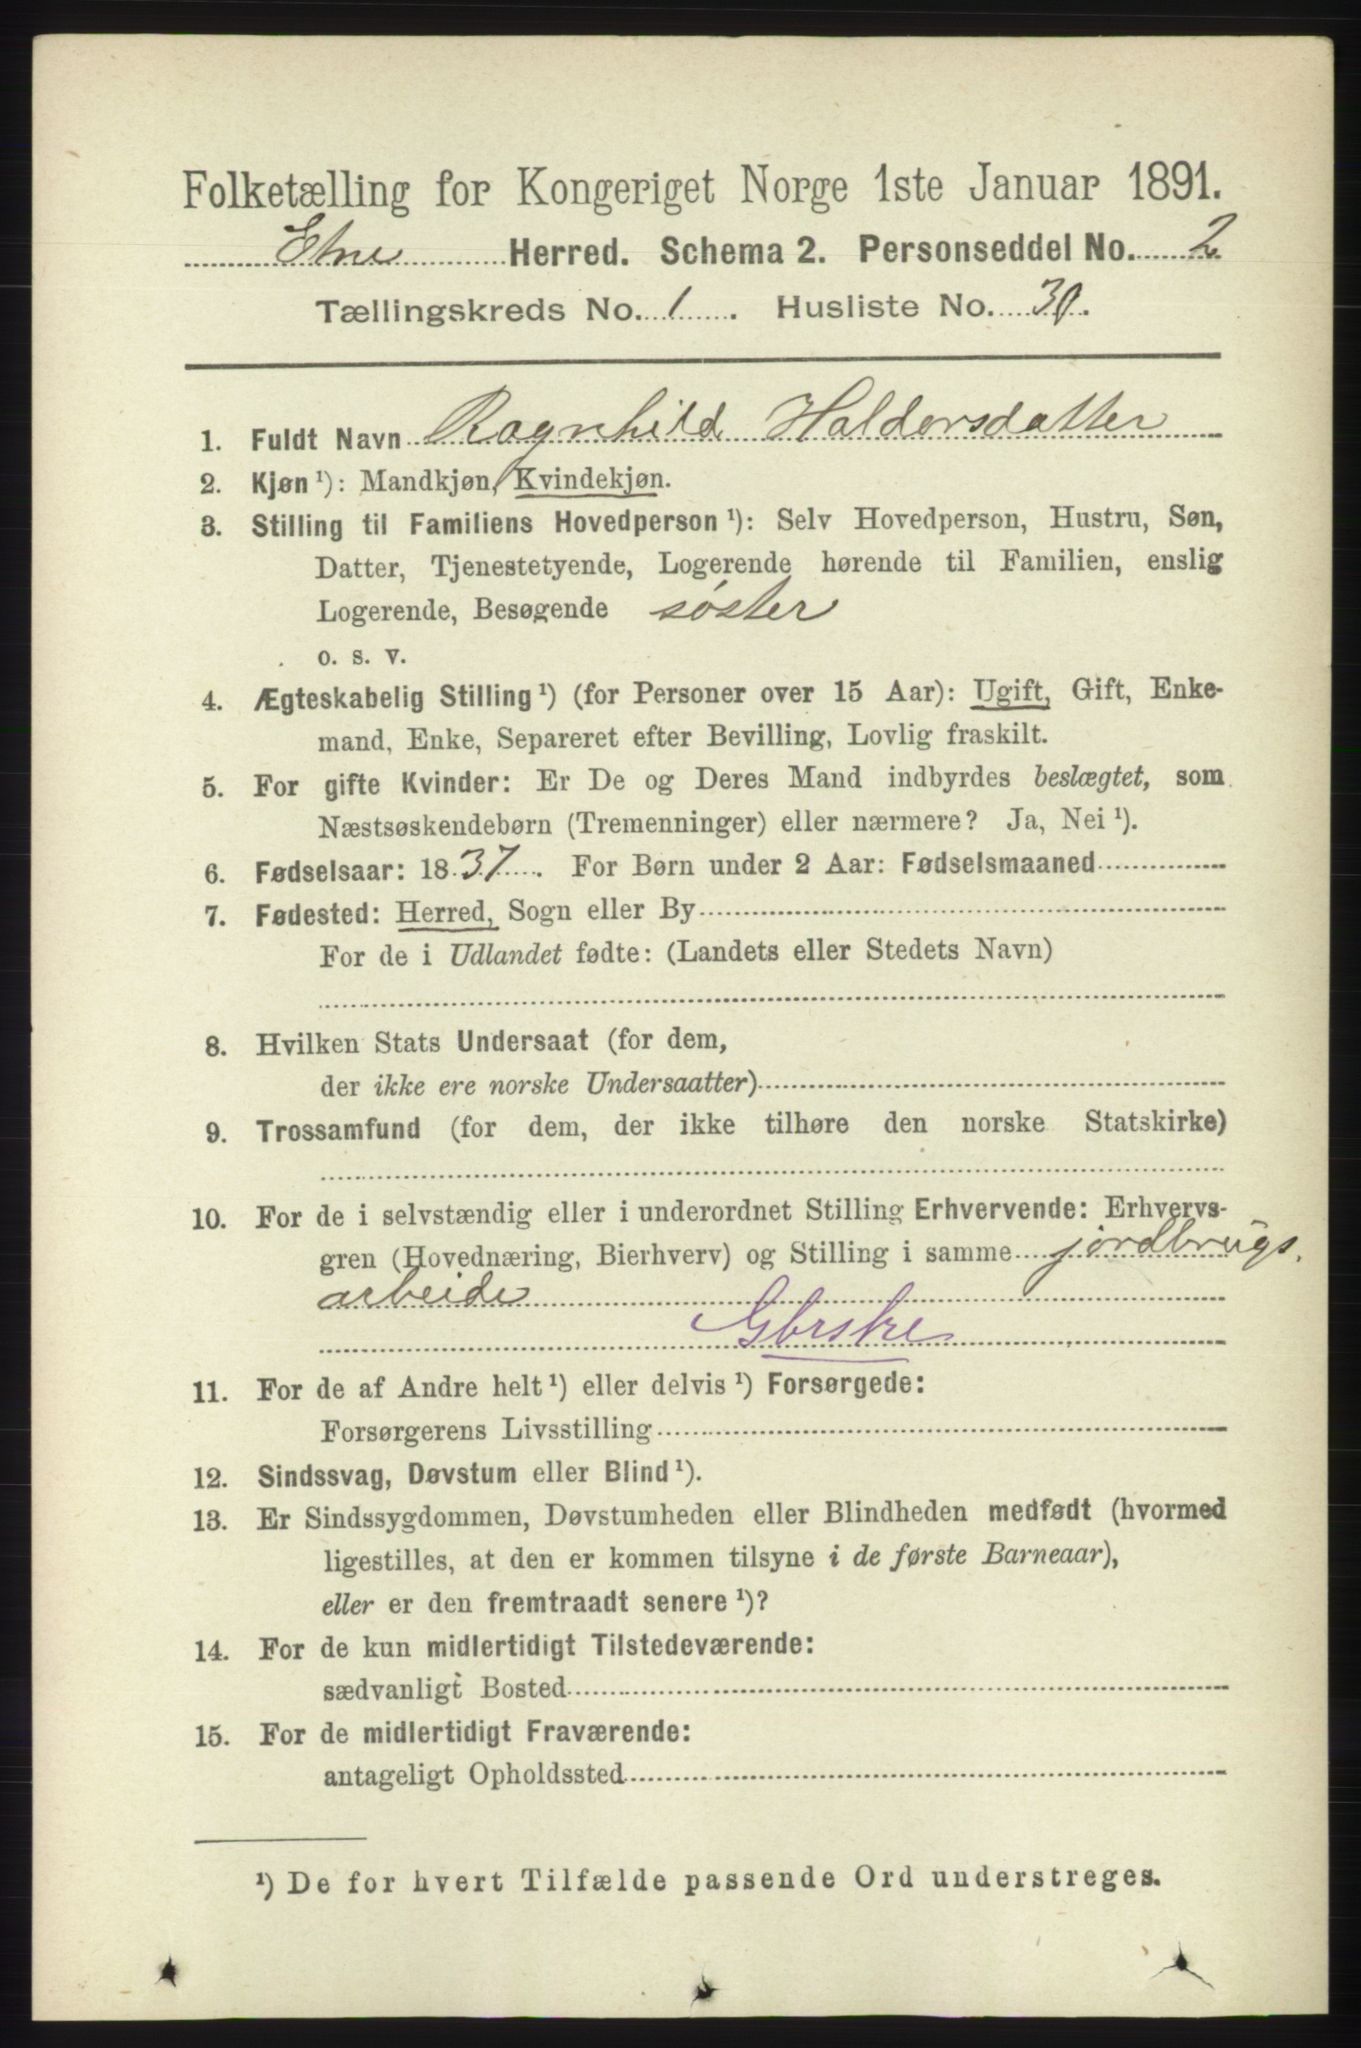 Folketælling for Kongeriget Norge 1ste Januar 1891.
Etne Herred. Schema 2. Personseddel No. 2
Tællingskreds No. 1. Husliste No. 30.
1. Fuldt Navn Ragnhild Haldorsdatter
2. Kjøn ¹): Mandkjøn, Kvindekjøn.
3. Stilling til Familiens Hovedperson ¹): Selv Hovedperson, Hustru, Søn,
Datter, Tjenestetyende, Logerende hørende til Familien, enslig
Logerende, Besøgende søster
o. s. v.
4. Ægteskabelig Stilling ¹) (for Personer over 15 Aar): Ugift, Gift, Enke-
mand, Enke, Separeret efter Bevilling, Lovlig fraskilt.
5. For gifte Kvinder: Er De og Deres Mand indbyrdes beslægtet, som
Næstsøskendebørn (Tremenninger) eller nærmere? Ja, Nei ¹).
6. Fødselsaar: 1837. For Børn under 2 Aar: Fødselsmaaned
7. Fødested: Herred, Sogn eller By
For de i Udlandet fødte: (Landets eller Stedets Navn)
8. Hvilken Stats Undersaat (for dem,
der ikke ere norske Undersaatter)
9. Trossamfund (for dem, der ikke tilhøre den norske Statskirke)
10. For de i selvstændig eller i underordnet Stilling Erhvervende: Erhvervs-
gren (Hovednæring, Bierhverv) og Stilling i samme jordbrugs.
arbeide
11. For de af Andre helt ¹) eller delvis ¹) Forsørgede:
Forsørgerens Livsstilling
12. Sindssvag, Døvstum eller Blind ¹).
13. Er Sindssygdommen, Døvstumheden eller Blindheden medfødt (hvormed
ligestilles, at den er kommen tilsyne i de første Barneaar),
eller er den fremtraadt senere ¹)?
14. For de kun midlertidigt Tilstedeværende:
sædvanligt Bosted
15. For de midlertidigt Fraværende:
antageligt Opholdssted
¹) De for hvert Tilfælde passende Ord understreges.